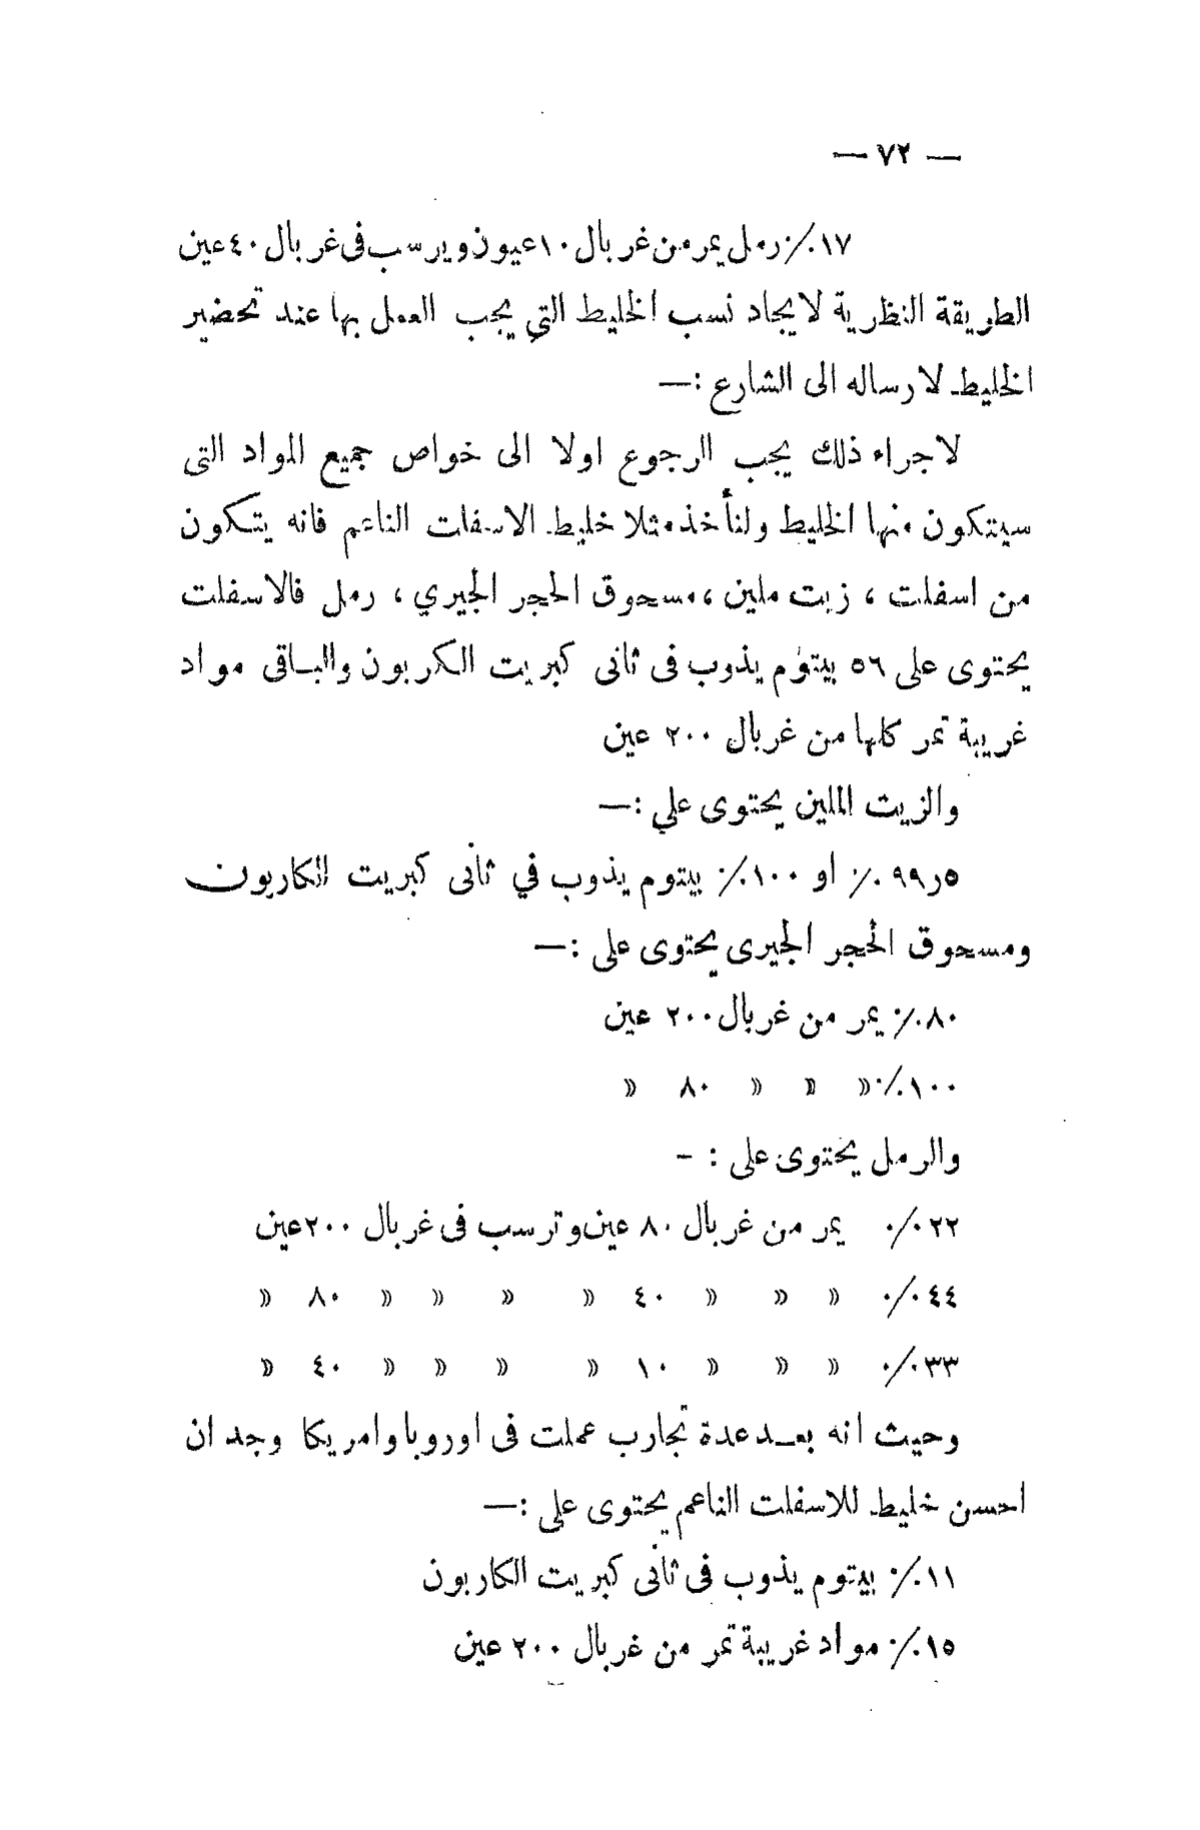 — ٧٢ —
١٧٪ رمل يمر من غربال ١٠ عيون ويرسب فى غربال ٤٠ عين
الطريقة النظرية لايجاد نسب الخليط التي يجب العمل بها عند تحضير
الخليط لارساله الى الشارع :—
لاجراء ذلك يجب الرجوع اولا الى خواص جميع المواد التى
سيتكون منها الخليط ولنأخذ مثلا خليط الاسفلت الناعم فانه يتكون
من اسفلت ، زيت ملين ، مسحوق الحجر الجيري ، رمل فالاسفلت
يحتوى على ٥٦ بيتوم يذوب فى ثانى كبريت الكربون والباقى مواد
غريبة تمر كلها من غربال ٢٠٠ عين
والزيت الملين يحتوى علي :—
٥ر٩٩٪ او ١٠٠٪ بيتوم يذوب في ثانى كبريت الكاربون
ومسحوق الحجر الجيرى يحتوى على :—
٨٠٪ يمر من غربال ٢٠٠ عين
١٠٠٪ » » » ٨٠ »
والرمل يحتوى على : -
٢٢٪ يمر من غربال ٨٠ عين وترسب فى غربال ٢٠٠ عين
٤٤٪ » » » ٤٠ » » » » ٨٠ »
٣٣٪ » » » ١٠ » » » » ٤٠ »
وحيث انه بعد عدة تجارب عملت فى اوروبا وامريكا وجد ان
احسن خليط للاسفلت الناعم يحتوى على :—
١١٪ بيتوم يذوب فى ثانى كبريت الكاربون
١٥٪ مواد غريبة تمر من غربال ٢٠٠ عين